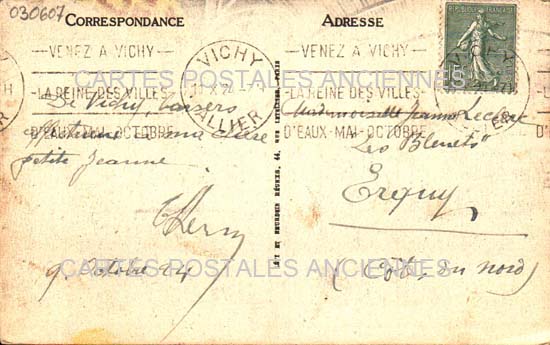 030607
CORRESPONDANCE
ADRESSE
REPUBLIQUE FRANÇAISE
15
VENEZ A VICHY
LA REINE DES VILLES
D'EAUX-MAI-OCTOBRE
VICHY
ALLIER
VENEZ A VICHY
LA REINE DES VILLES
D'EAUX-MAI-OCTOBRE
CARTES POSTALES ANCIENNES
CARTES POSTALES ANCIENNES
De Vichy, baisers
affectueux à ma chère
petite Jeanne.
9. Octobre 24
Mademoiselle Jeanne Leclerc
"Les Bleuets"
Erquy
(Côtes du nord)
CARTES POSTALES ANCIENNES
CARTES POSTALES ANCIENNES